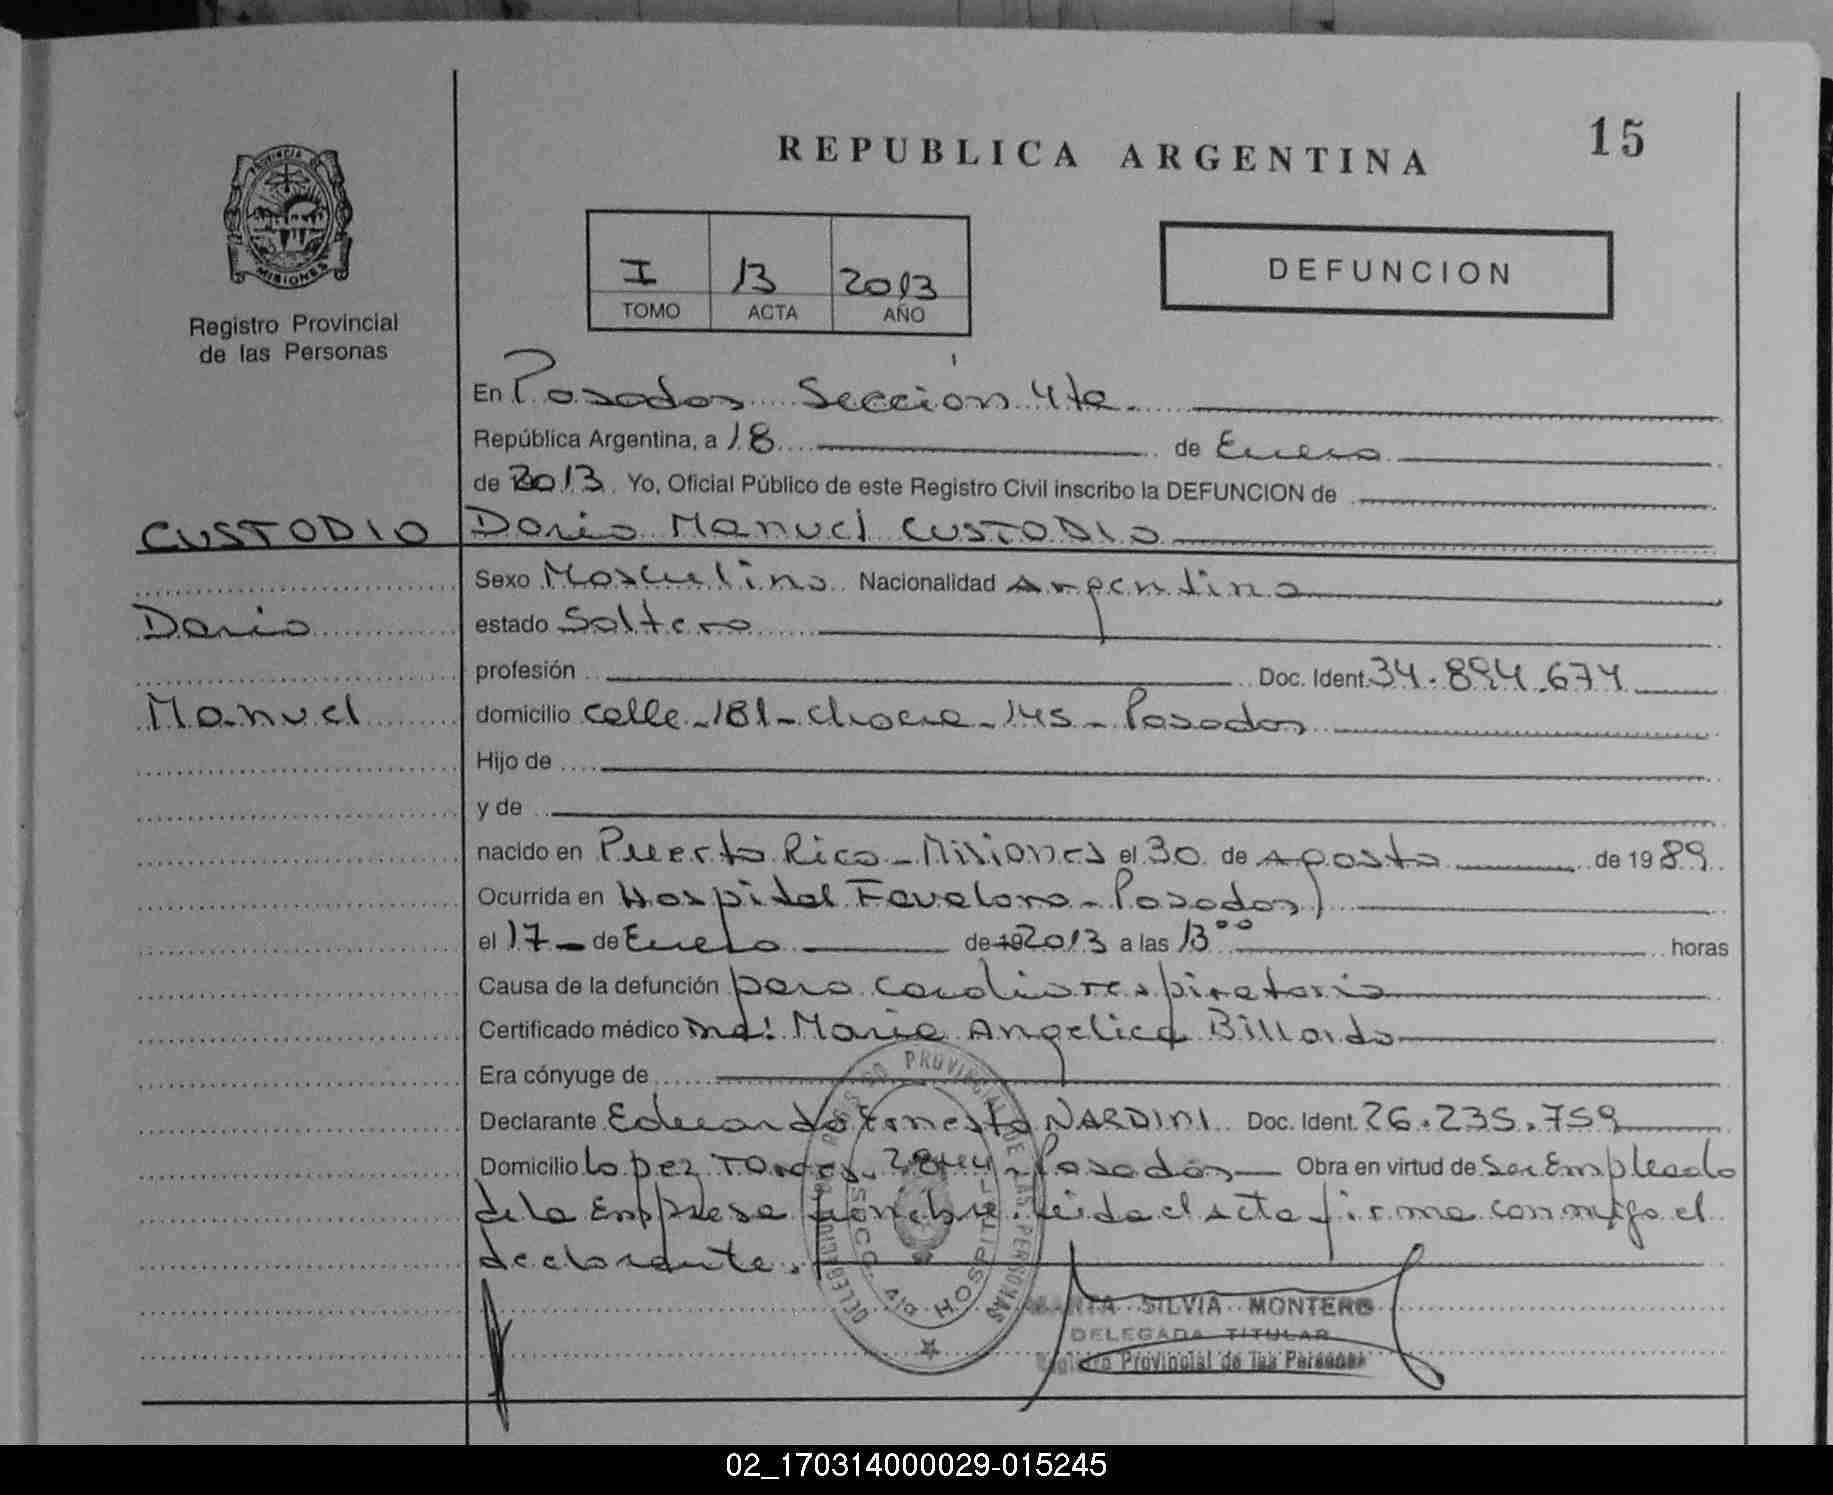 REPUBLICA ARGENTINA
15
PROVINCIA DE
MISIONES
Registro Provincial
de las Personas
I 13 2013
TOMO ACTA AÑO
DEFUNCION
En Posadas Sección 4ta.
República Argentina, a 18 de Enero
de 2013 Yo, Oficial Público de este Registro Civil inscribo la DEFUNCION de
CUSTODIO Dario Manuel CUSTODIO
Sexo Masculino Nacionalidad Argentina
Dario estado Soltero
profesión Doc. Ident. 34.894.674
Manuel domicilio Calle-181-chacra-145-Posadas
Hijo de
y de
nacido en Puerto Rico-Misiones el 30 de Agosto de 1989
Ocurrida en Hospital Favaloro-Posadas
el 17 de Enero de 19 2013 a las 13 00 horas
Causa de la defunción paro cardiorespiratorio
Certificado médico Angelica Billordo
Era cónyuge de
Declarante Eduardo Ernesto NARDINI Doc. Ident. 26.235.759
Domicilio Lopez Torres Posadas Obra en virtud de Ser Empleado
de la Empresa funebre. Leida el Acta firma conmigo el
declarante.
MARTA SILVIA MONTERO
DELEGADA TITULAR
Registro Provincial de las Personas
02_170314000029-015245